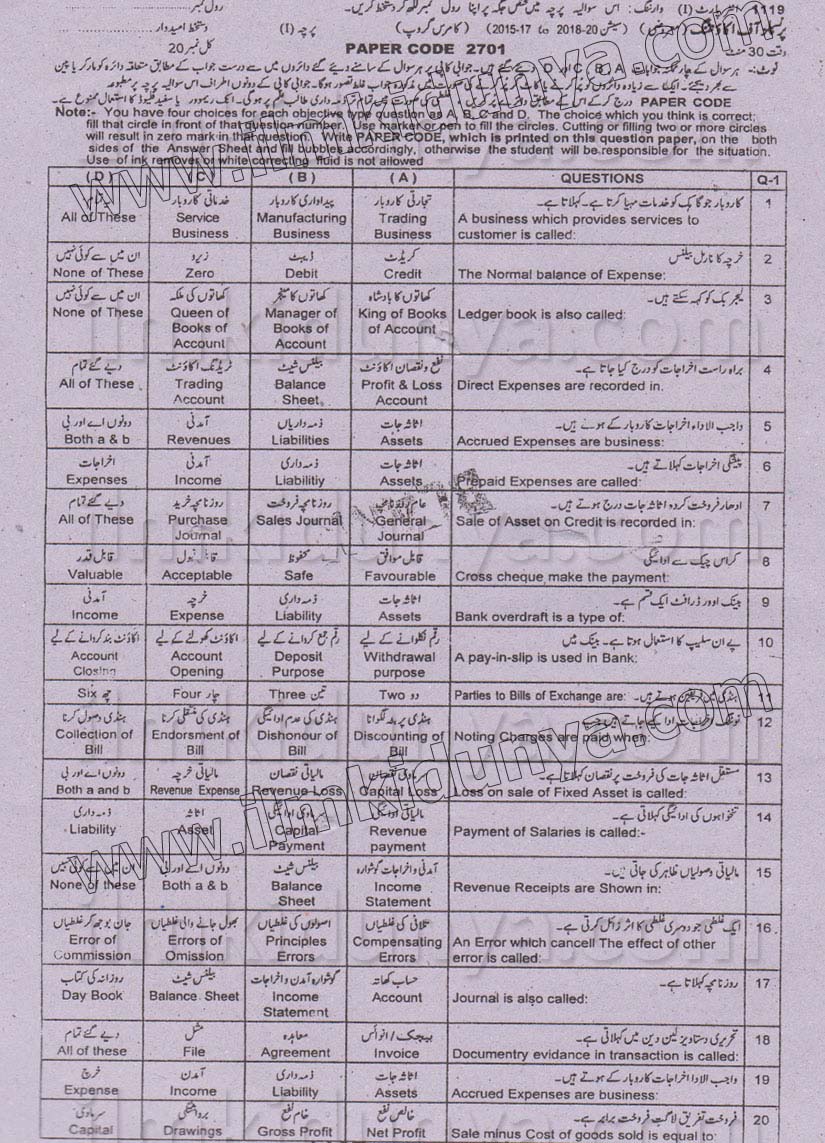 1119
(I) وارننگ: اس سوالیہ پرچہ میں مختص جگہ پر اپنا رول نمبر لکھ کر دستخط کریں۔
رول نمبر
(سیشن 20-2018 to 2015-17) (کامرس گروپ)
پرچہ (I)
دستخط امیدوار
وقت 30 منٹ
PAPER CODE 2701
کل نمبر 20
نوٹ:-
PAPER CODE
Note:- You have four choices for each objective type question as A, B, C and D. The choice which you think is correct;
fill that circle in front of that question number. Use marker or pen to fill the circles. Cutting or filling two or more circles
will result in zero mark in that question. Write PAPER CODE, which is printed on this question paper, on the both
sides of the Answer Sheet and fill bubbles accordingly, otherwise the student will be responsible for the situation.
Use of ink remover or white correcting fluid is not allowed
(D) (C) (B) (A) QUESTIONS Q-1
1 کاروبار جو گاہک کو خدمات مہیا کرتا ہے۔ کہلاتا ہے۔
تجارتی کاروبار
پیداواری کاروبار
خدماتی کاروبار
All of These Service Business Manufacturing Business Trading Business A business which provides services to customer is called:
2 خرچہ کا نارمل بیلنس
کریڈٹ
ڈیبٹ
زیرو
ان میں سے کوئی نہیں
None of These Zero Debit Credit The Normal balance of Expense:
3 لیجر بک کو کہہ سکتے ہیں۔
کھاتوں کا بادشاہ
کھاتوں کا منیجر
کھاتوں کی ملکہ
ان میں سے کوئی نہیں
None of These Queen of Books of Account Manager of Books of Account King of Books of Account Ledger book is also called:
4 براہ راست اخراجات کو درج کیا جاتا ہے۔
نفع و نقصان اکاؤنٹ
بیلنس شیٹ
ٹریڈنگ اکاؤنٹ
دیے گئے تمام
All of These Trading Account Balance Sheet Profit & Loss Account Direct Expenses are recorded in.
5 واجب الاداء اخراجات کاروبار کے ہوتے ہیں۔
اثاثہ جات
ذمہ داریاں
آمدنی
دونوں اے اور بی
Both a & b Revenues Liabilities Assets Accrued Expenses are business:
6 پیشگی اخراجات کہلاتے ہیں۔
اثاثہ جات
ذمہ داری
آمدنی
اخراجات
Expenses Income Liabilitiy Assets Prepaid Expenses are called:
7 ادھار فروخت کردہ اثاثہ جات درج ہوتے ہیں۔
روزنامچہ فروخت
روزنامچہ خرید
دیے گئے تمام
All of These Purchase Journal Sales Journal General Journal Sale of Asset on Credit is recorded in:
8 کراس چیک سے ادائیگی
قابل موافق
محفوظ
قابل قبول
قابل قدر
Valuable Acceptable Safe Favourable Cross cheque make the payment:
9 بینک اوور ڈرافٹ ایک قسم ہے۔
اثاثہ جات
ذمہ داری
خرچہ
آمدنی
Income Expense Liability Assets Bank overdraft is a type of:
10 پے ان سلیپ کا استعمال ہوتا ہے۔ بینک میں
رقم نکلوانے کے لیے
رقم جمع کروانے کے لیے
اکاؤنٹ کھولنے کے لیے
اکاؤنٹ بند کروانے کے لیے
Account Closing Account Opening Deposit Purpose Withdrawal purpose A pay-in-slip is used in Bank:
11 Parties to Bills of Exchange are:
Two دو
Three تین
Four چار
Six چھ
12
ہنڈی پر بٹہ لگوانا
ہنڈی کی عدم ادائیگی
ہنڈی کی منتقلی کرنا
ہنڈی وصول کرنا
Collection of Bill Endorsment of Bill Dishonour of Bill Discounting of Bill Noting Charges are paid when:
13 مستقل اثاثہ جات کی فروخت پر نقصان کہلاتا ہے۔
مالیاتی نقصان
مالیاتی خرچہ
دونوں اے اور بی
Both a and b Revenue Expense Revenue Loss Capital Loss Loss on sale of Fixed Asset is called:
14 تنخواہوں کی ادائیگی کہلاتی ہے۔
مالیاتی ادائیگی
اثاثہ
ذمہ داری
Liability Asset Capital Payment Revenue payment Payment of Salaries is called:-
15 مالیاتی وصولیاں ظاہر کی جاتی ہیں۔
آمدنی و اخراجات گوشوارہ
بیلنس شیٹ
دونوں اے اور بی
None of these Both a & b Balance Sheet Income Statement Revenue Receipts are Shown in:
16 ایک غلطی جو دوسری غلطی کا اثر زائل کرتی ہے۔
تلافی کی غلطیاں
اصولوں کی غلطیاں
بھول جانے والی غلطیاں
جان بوجھ کر غلطیاں
Error of Commission Errors of Omission Principles Errors Compensating Errors An Error which cancell The effect of other error is called:
17 روزنامچہ کہلاتا ہے۔
حساب کھاتہ
گوشوارہ آمدن و اخراجات
بیلنس شیٹ
روزانہ کی کتاب
Day Book Balance Sheet Income Statement Account Journal is also called:
18 تحریری دستاویز لین دین میں کہلاتی ہے۔
بیجک/انوائس
معاہدہ
مثل
دیے گئے تمام
All of these File Agreement Invoice Documentry evidance in transaction is called:
19 واجب الادا اخراجات کاروبار کے ہوتے ہیں۔
اثاثہ جات
ذمہ داری
آمدن
خرچ
Expense Income Liability Assets Accrued Expenses are business:
20 فروخت تفریق لاگت فروخت برابر ہے۔
خالص نفع
خام نفع
برداشتگی
سرمایہ
Capital Drawings Gross Profit Net Profit Sale minus Cost of goods sold is equal to:
www.ilmkidunya.com
www.ilmkidunya.com
ilmkidunya.com